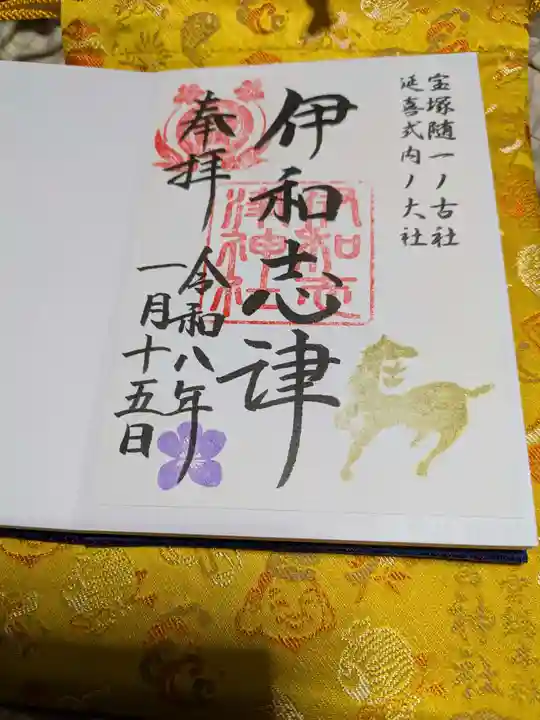 宝塚随一ノ古社
延喜式内ノ大社
伊和志津
奉拝
令和八年
一月十五日
伊和志
津神社